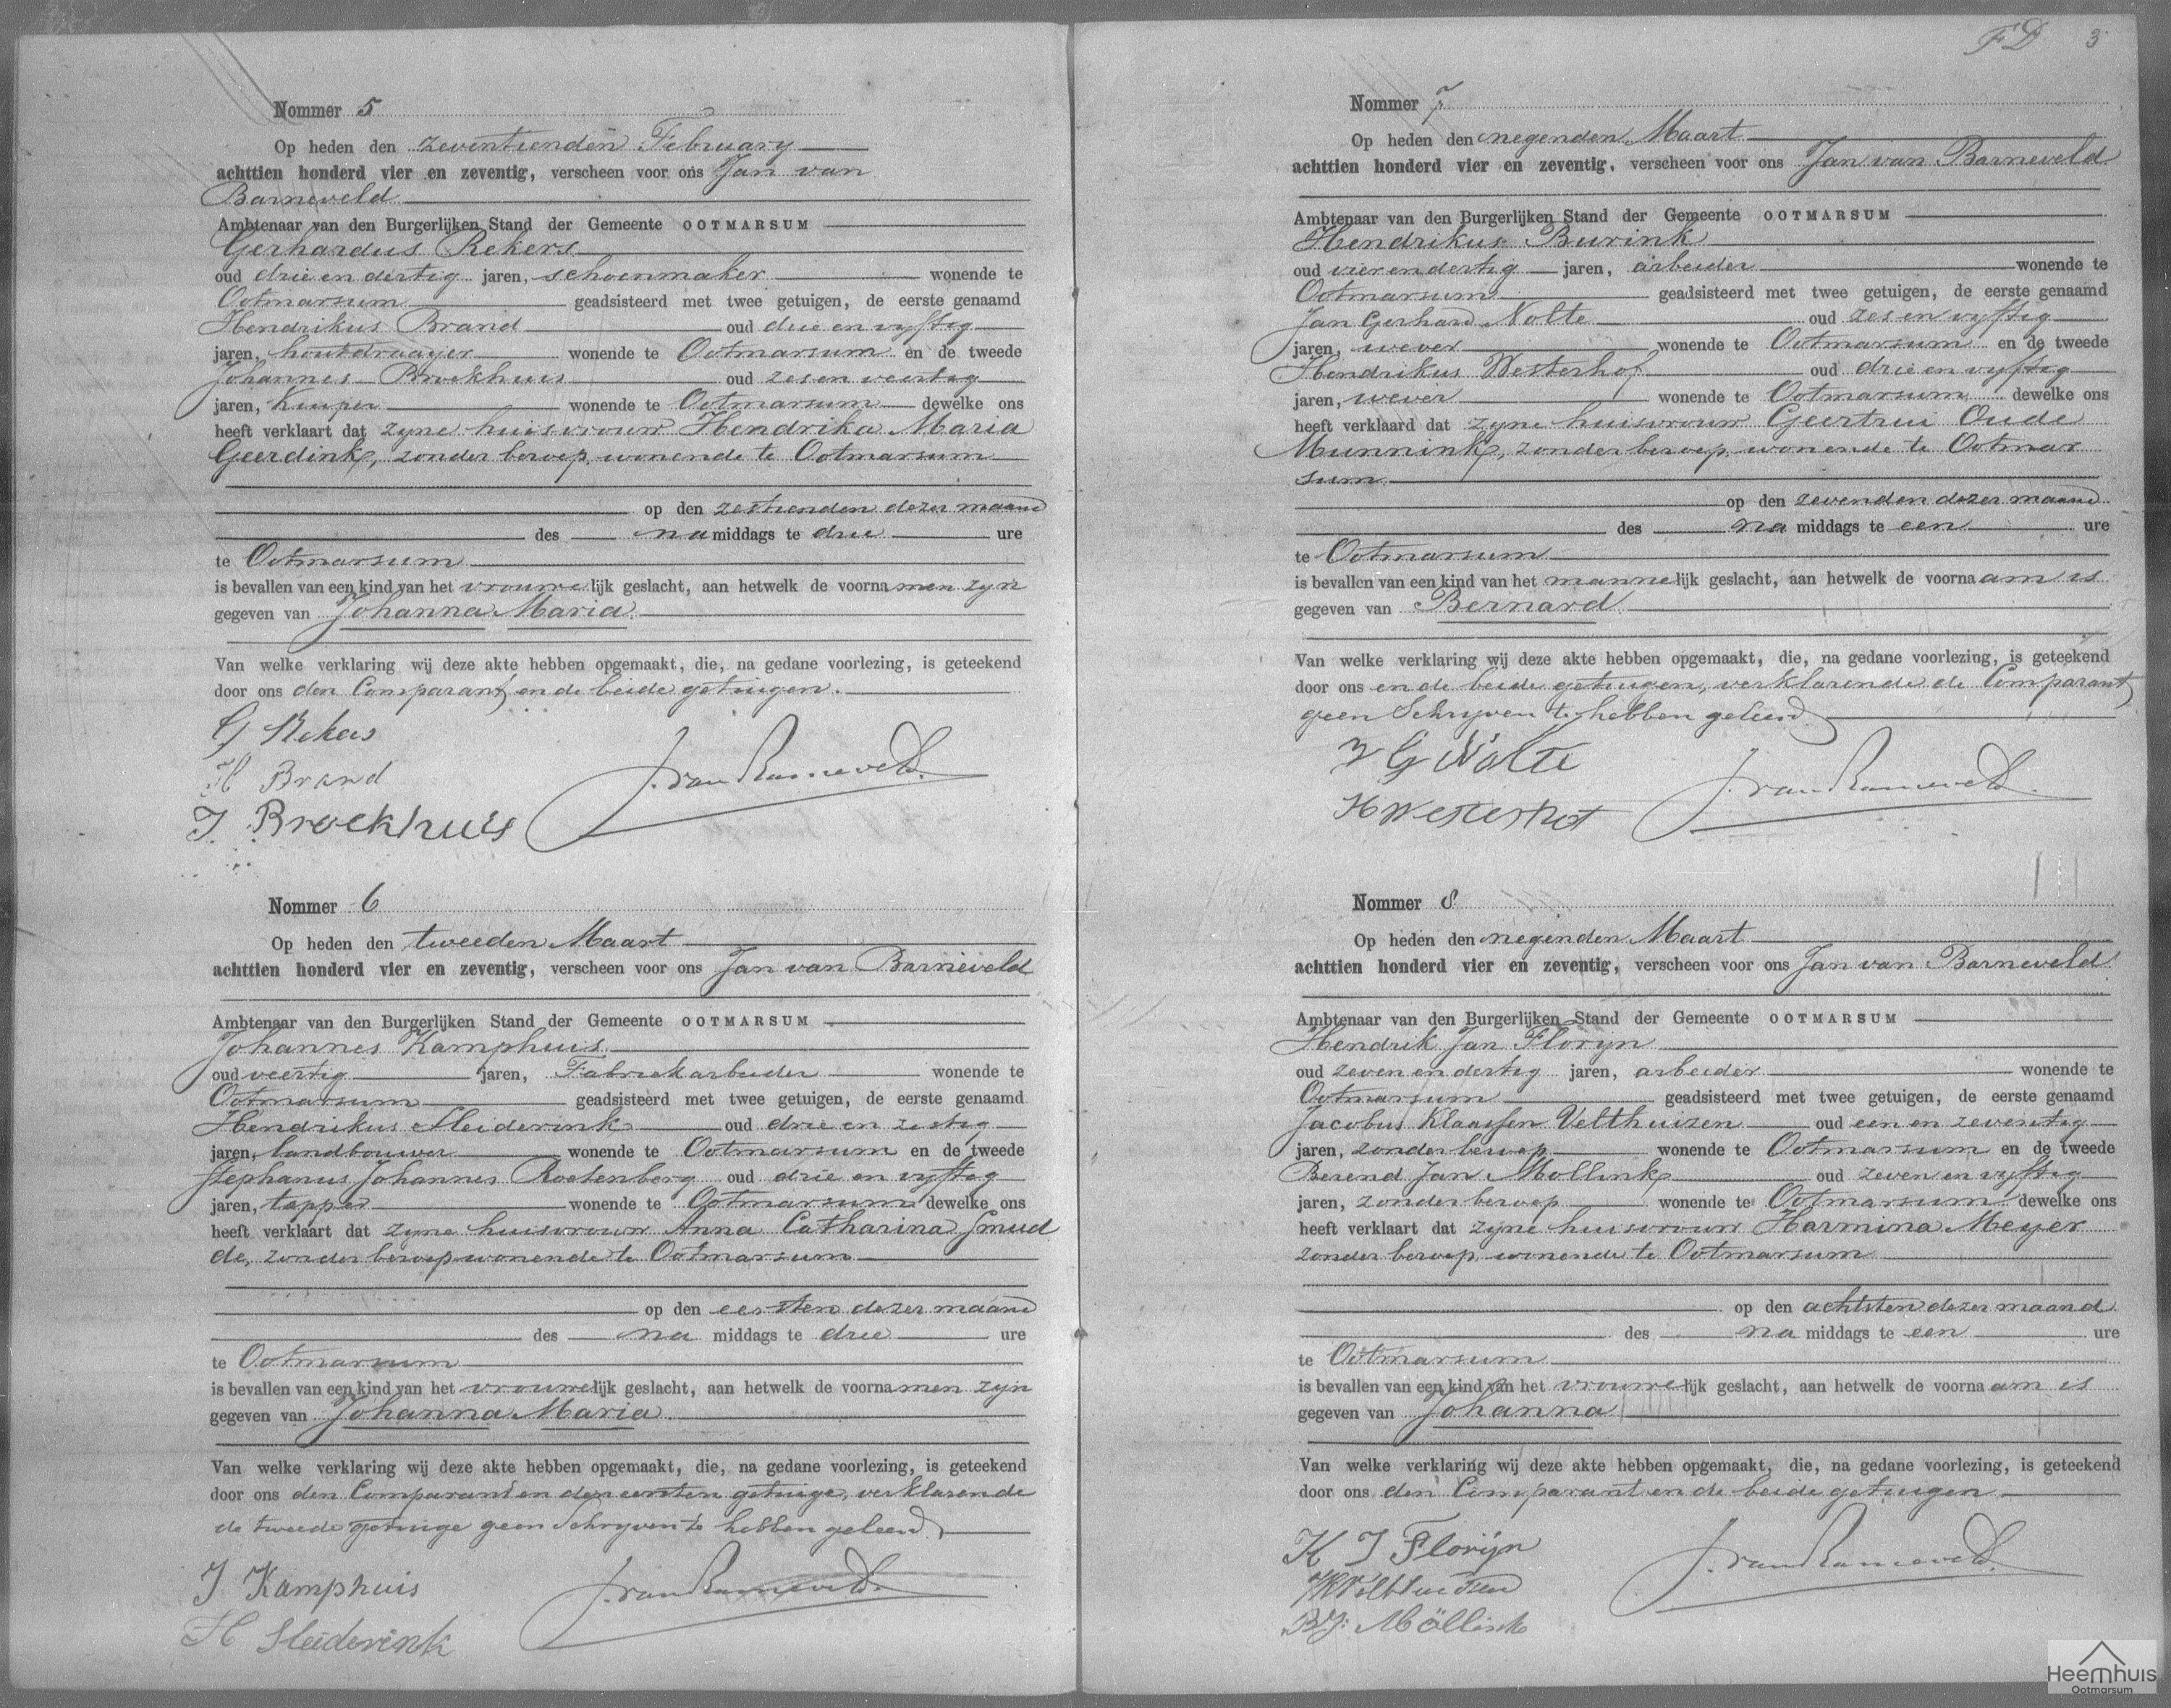 Nommer 5
Op heden den zeventienden February
achttien honderd vier en zeventig, verscheen voor ons Jan van
Barneveld
Ambtenaar van den Burgerlijken Stand der Gemeente OOTMARSUM
Gerhardus Rekers
oud drie en dertig jaren, schoenmaker wonende te
Ootmarsum geadsisteerd met twee getuigen, de eerste genaamd
Hendrikus Brand oud drie en vyftig
jaren, houtdraayer wonende te Ootmarsum en de tweede
Johannes Broekhuis oud zes en veertig
jaren, Kuiper wonende te Ootmarsum dewelke ons
heeft verklaart dat zyne huisvrouw Hendrika Maria
Geerdink, zonder beroep, wonende te Ootmarsum
op den zestienden dezer maand
des na middags te drie ure
te Ootmarsum
is bevallen van een kind van het vrouwelijk geslacht, aan hetwelk de voornamen zyn
gegeven van Johanna Maria.
Van welke verklaring wij deze akte hebben opgemaakt, die, na gedane voorlezing, is geteekend
door ons den Comparant en de beide getuigen.
G Rekers
H Brand
J. Broekhuis
J. van Barneveld.
Nommer 6
Op heden den tweeden Maart
achttien honderd vier en zeventig, verscheen voor ons Jan van Barneveld
Ambtenaar van den Burgerlijken Stand der Gemeente OOTMARSUM
Johannes Kamphuis
oud veertig jaren, Fabriekarbeider wonende te
Ootmarsum geadsisteerd met twee getuigen, de eerste genaamd
Hendrikus Sleiderink oud drie en zestig
jaren, landbouwer wonende te Ootmarsum en de tweede
Stephanus Johannes Roetenberg oud drie en vyftig
jaren, tapper wonende te Ootmarsum dewelke ons
heeft verklaart dat zyne huisvrouw Anna Catharina Smud
de, zonder beroep wonende te Ootmarsum
op den eersten dezer maand
des na middags te drie ure
te Ootmarsum
is bevallen van een kind van het vrouwelijk geslacht, aan hetwelk de voornamen zyn
gegeven van Johanna Maria.
Van welke verklaring wij deze akte hebben opgemaakt, die, na gedane voorlezing, is geteekend
door ons den Comparant en den eersten getuige, verklarende
de tweede getuige geen Schryven te hebben geleerd.
J Kamphuis
H Sleiderink
J. van Barneveld.
FD 3
Nommer 7
Op heden den negenden Maart
achttien honderd vier en zeventig, verscheen voor ons Jan van Barneveld
Ambtenaar van den Burgerlijken Stand der Gemeente OOTMARSUM
Hendrikus Burink
oud vier en dertig jaren, arbeider wonende te
Ootmarsum geadsisteerd met twee getuigen, de eerste genaamd
Jan Gerhard Nolte oud zes en vyftig
jaren, wever wonende te Ootmarsum en de tweede
Hendrikus Westerhof oud drie en vyftig
jaren, wever wonende te Ootmarsum dewelke ons
heeft verklaard dat zyne huisvrouw Geertrui Oude
Munnink, zonder beroep, wonende te Ootmar
sum.
op den zevenden dezer maand
des na middags te een ure
te Ootmarsum
is bevallen van een kind van het mannelijk geslacht, aan hetwelk de voornaam is
gegeven van Bernard
Van welke verklaring wij deze akte hebben opgemaakt, die, na gedane voorlezing, is geteekend
door ons en de beide getuigen, verklarende de Comparant
geen Schryven te hebben geleerd.
J G Nolte
H Westerhof
J. van Barneveld.
Nommer 8
Op heden den negenden Maart
achttien honderd vier en zeventig, verscheen voor ons Jan van Barneveld
Ambtenaar van den Burgerlijken Stand der Gemeente OOTMARSUM
Hendrik Jan Floryn
oud zeven en dertig jaren, arbeider wonende te
Ootmarsum geadsisteerd met twee getuigen, de eerste genaamd
Jacobus Klaassen Velthuizen oud een en zeventig
jaren, zonder beroep wonende te Ootmarsum en de tweede
Berend Jan Mollink oud zeven en vyftig
jaren, zonder beroep wonende te Ootmarsum dewelke ons
heeft verklaart dat zyne huisvrouw Harmina Meyer
zonder beroep, wonende te Ootmarsum
op den achtsten dezer maand
des na middags te een ure
te Ootmarsum
is bevallen van een kind van het vrouwelijk geslacht, aan hetwelk de voornaam is
gegeven van Johanna
Van welke verklaring wij deze akte hebben opgemaakt, die, na gedane voorlezing, is geteekend
door ons den Comparant en de beide getuigen
H J Florijn
B J: Möllink
J. van Barneveld.
Heemhuis
Ootmarsum